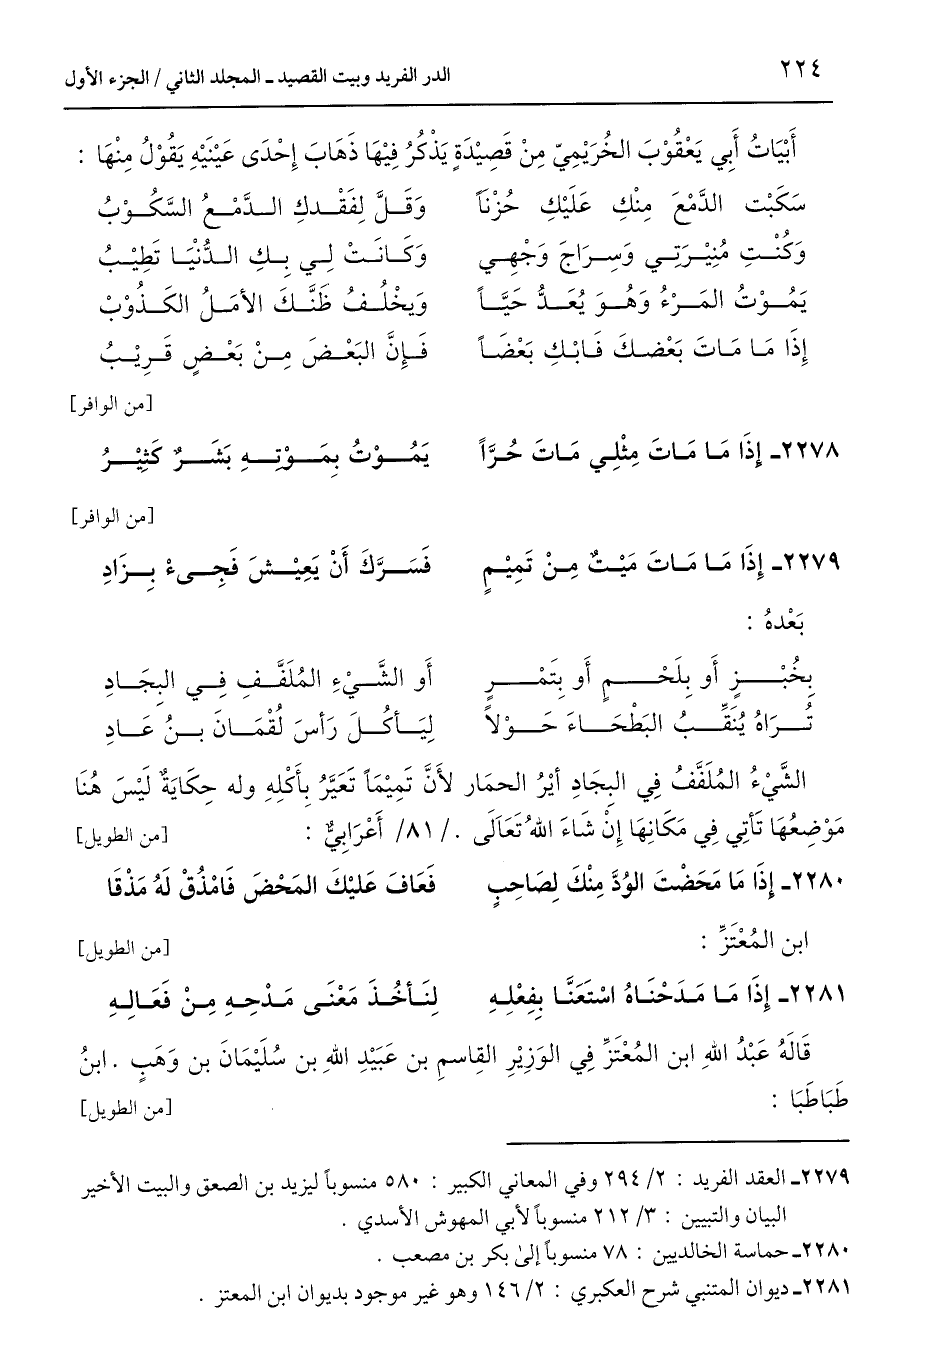 ٢٢٤ الدر الفريد وبيت القصيد ـ المجلد الثاني / الجزء الأول
أَبْيَاتُ أَبِي يَعْقُوْبَ الخُرَيْمِيّ مِنْ قَصِيْدَةٍ يَذْكُرُ فِيْهَا ذَهَابَ إِحْدَى عَيْنَيْهِ يَقُوْلُ مِنْهَا :
سَكَبْتَ الدَّمْعَ مِنْكَ عَلَيْكَ حُزْنَاً وَقَلَّ لِفَقْدِكَ الدَّمْعُ السَّكُوْبُ
وَكُنْتِ مُنِيْرَتِي وَسِرَاجَ وَجْهِي وَكَانَتْ لِي بِكِ الدُّنْيَا تَطِيْبُ
يَمُوْتُ المَرْءُ وَهُوَ يُعَدُّ حَيَّاً وَيخْلُفُ ظَنَّكَ الأَمَلُ الكَذُوْبُ
إِذَا مَا مَاتَ بَعْضكَ فَابْكِ بَعْضَاً فَإِنَّ البَعْضَ مِنْ بَعْضٍ قَرِيْبُ
[من الوافر]
٢٢٧٨ـ إِذَا مَا مَاتَ مِثْلِي مَاتَ حُرَّاً يَمُوْتُ بِمَوْتِهِ بَشَرٌ كَثِيْرُ
[من الوافر]
٢٢٧٩ـ إِذَا مَا مَاتَ مَيْتٌ مِنْ تَمِيْمٍ فَسَرَّكَ أَنْ يَعِيْشَ فَجِيءْ بِزَادِ
بَعْدهُ :
بِخُبْزٍ أَو بِلَحْمٍ أَو بِتَمْرٍ أَو الشَّيْءِ المُلَفَّفِ فِي البِجَادِ
تُرَاهُ يُنَقِّبُ البَطْحَاءَ حَوْلاً لِيَأكُلَ رَأسَ لُقْمَانَ بِنُ عَادِ
الشَّيْءُ المُلَفَّفُ فِي البِجَادِ أَيْرُ الحمَار لأَنَّ تَمِيْمَاً تَعَيَّرُ بِأَكْلِهِ وله حِكَايَةٌ لَيْسَ هُنَا
مَوْضِعُهَا تَأتِي فِي مَكَانِهَا إِنْ شَاءَ اللهُ تَعَالَى . / ٨١/ أَعْرَابِيٌّ : [من الطويل]
٢٢٨٠ـ إِذَا مَا مَحَضْتَ الوُدَّ مِنْكَ لِصَاحِبٍ فَعَافَ عَلَيْكَ المَحْضَ فَامْذُقْ لَهُ مَذْقَا
ابن المُعْتَزِّ : [من الطويل]
٢٢٨١ـ إِذَا مَا مَدَحْنَاهُ اسْتَعَنَّا بِفِعْلِهِ لِنَأخُذَ مَعْنَى مَدْحِهِ مِنْ فَعَالِهِ
قَالَهُ عَبْدُ اللهِ ابن المُعْتَزِّ فِي الوَزِيْرِ القَاسمِ بن عَبَيْدِ اللهِ بن سُلَيْمَانَ بن وَهَبٍ . ابنُ
طَبَاطَبَا : [من الطويل]
٢٢٧٩ـ العقد الفريد : ٢/ ٢٩٤ وفي المعاني الكبير : ٥٨٠ منسوباً ليزيد بن الصعق والبيت الأخير
البيان والتبيين : ٣/ ٢١٢ منسوباً لأبي المهوش الأسدي .
٢٢٨٠ـ حماسة الخالديين : ٧٨ منسوباً إلىٰ بكر بن مصعب .
٢٢٨١ـ ديوان المتنبي شرح العكبري : ٢/ ١٤٦ وهو غير موجود بديوان ابن المعتز .